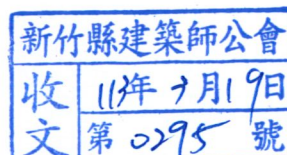 新竹縣建築師公會
收文
113年3月19日
第0295號